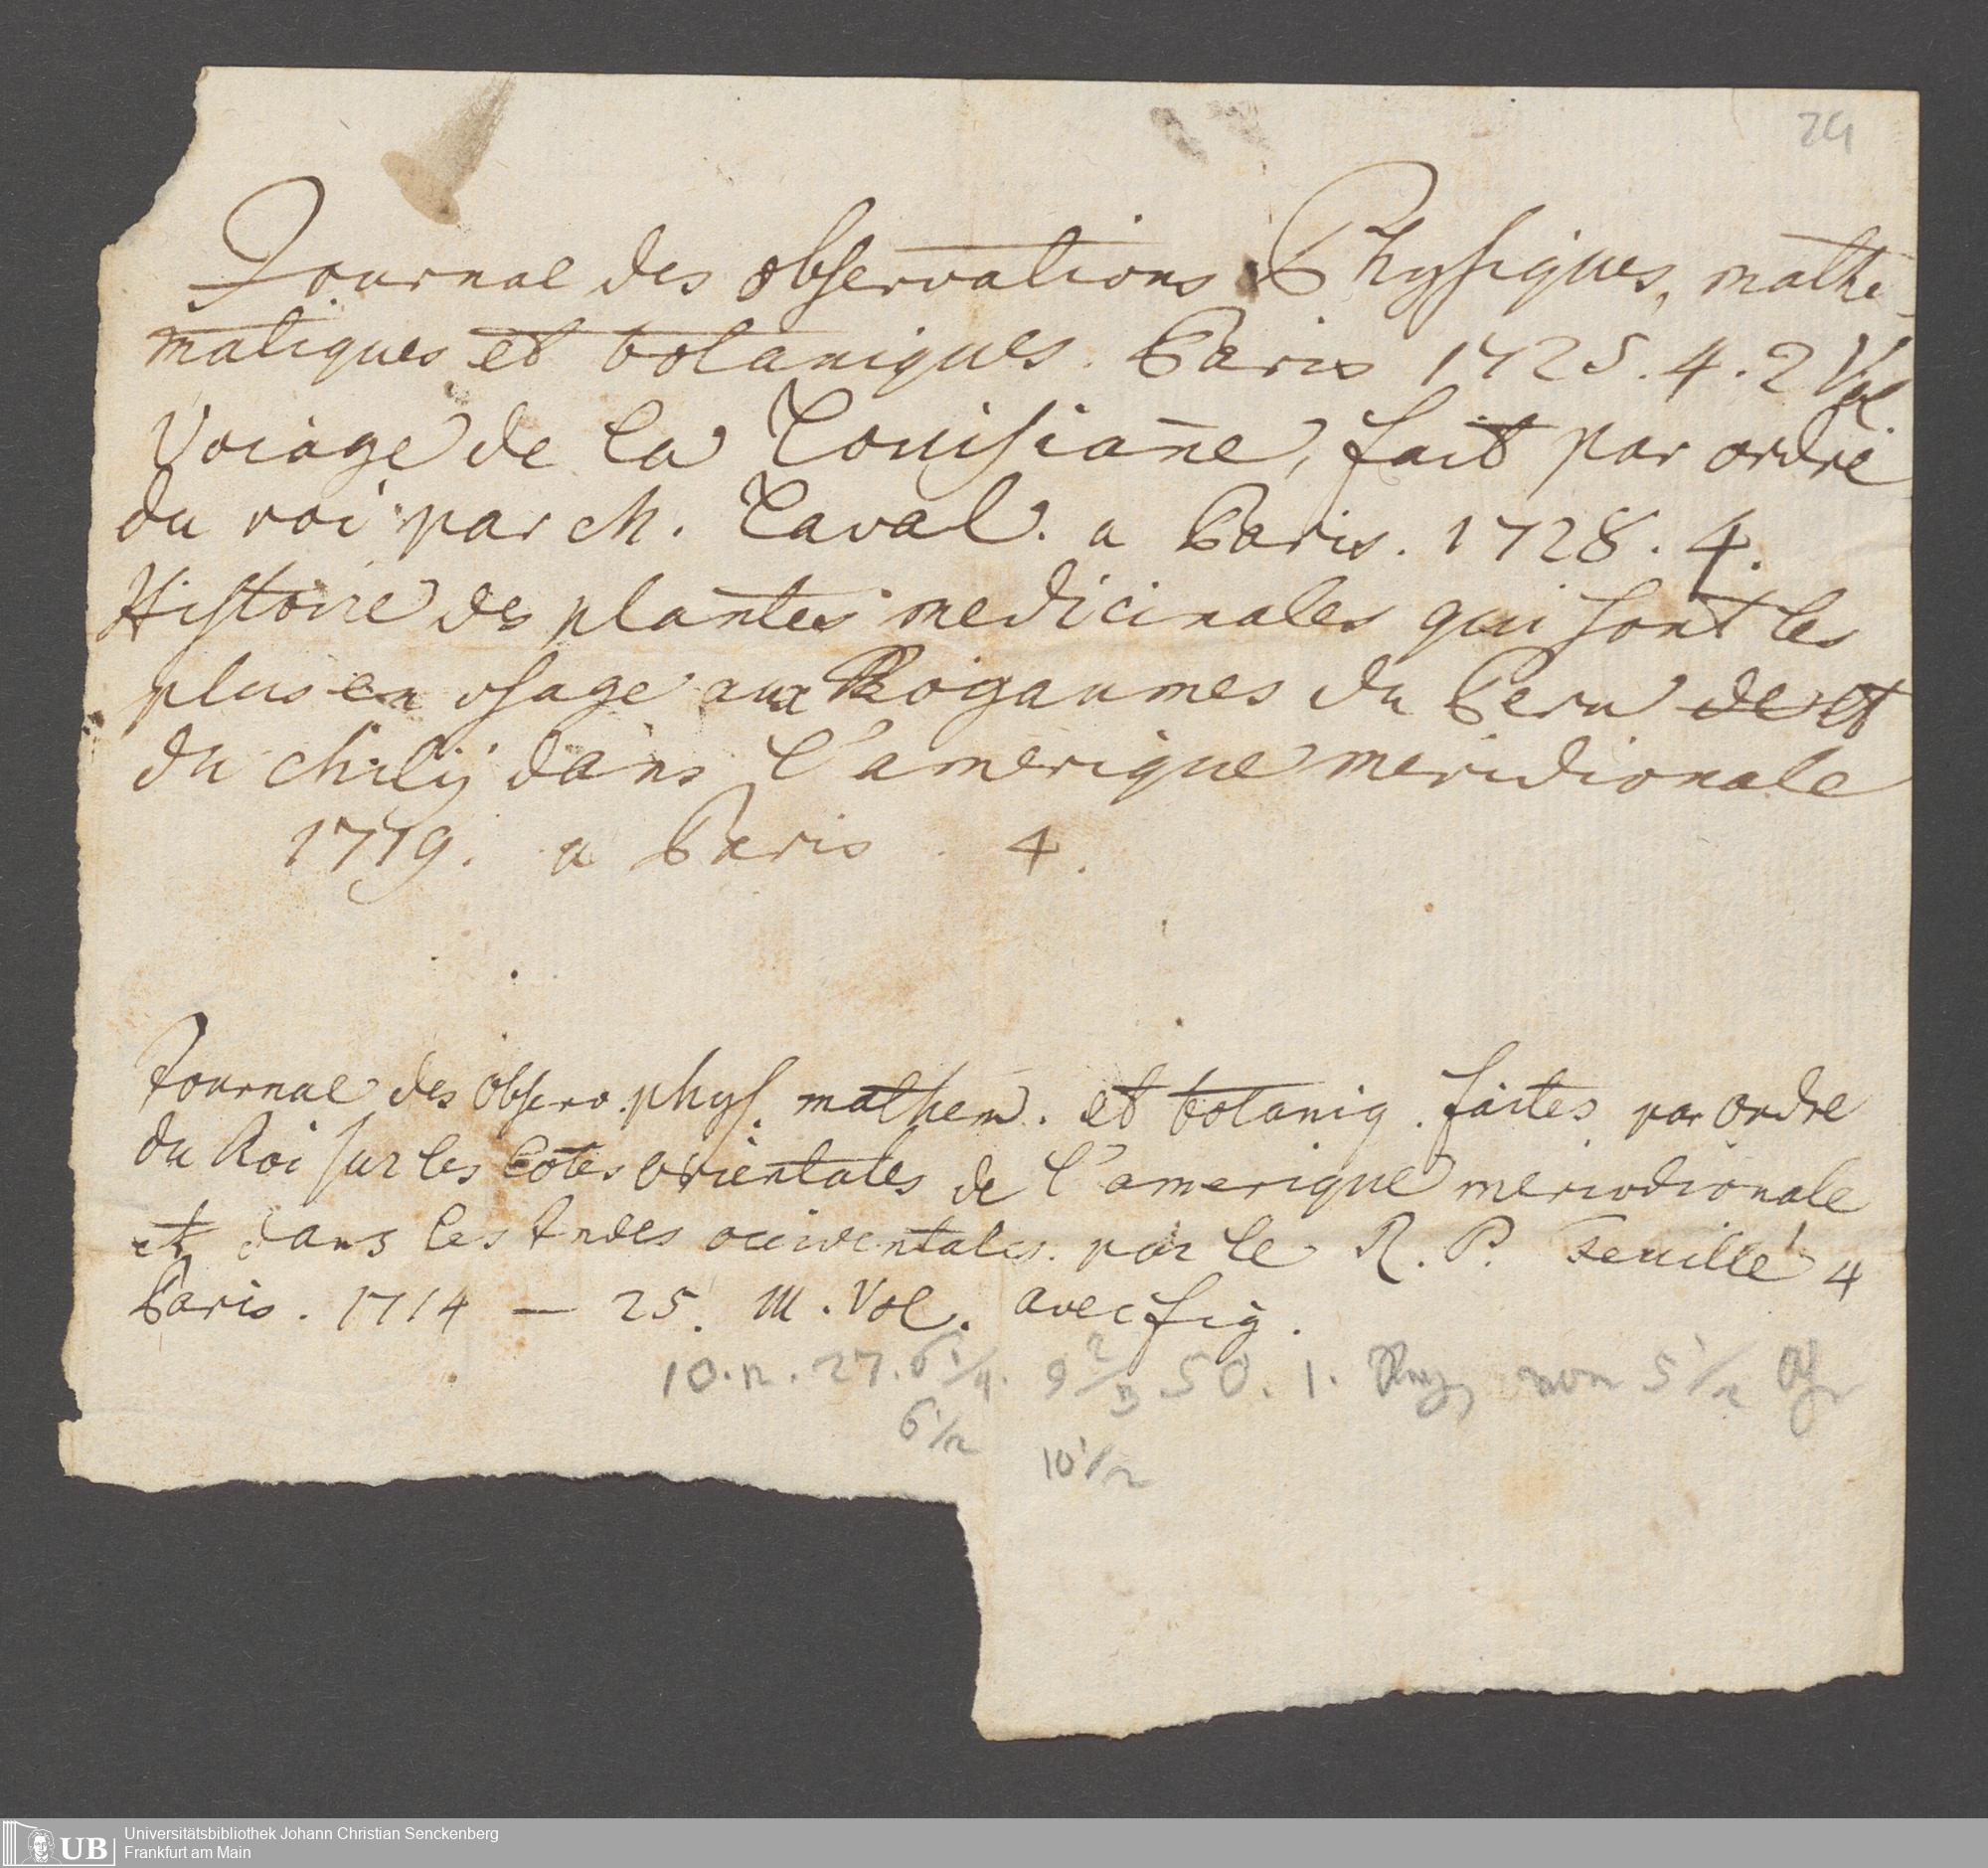 24
Journal des observations Physiques, mathe-
matiques et botaniques. Paris 1725. 4. 2 Vol
Voiage de la Louisiane, fait par ordre
du roi par M. Laval. a Paris. 1728. 4.
Histoire des plantes medicinales qui sont les
plus en usage aux Roiaumes du Peru de et
du Chilÿ dans l'amerique meridionale
1719. a Paris 4.
Journal des observ. phys. mathem. et botaniq. faites par ordre
du Roi sur les Cotes orientales de l'amerique meriodionale
et dans les Indes occidentales. par le R. P. Feuillé 4
Paris. 1714 — 25. III. Vol. avec fig.
10. n. 27. 6 1/4. 9 2/3 50. 1. 5 1/2
6 1/2 10 1/2
UB Universitätsbibliothek Johann Christian Senckenberg
Frankfurt am Main